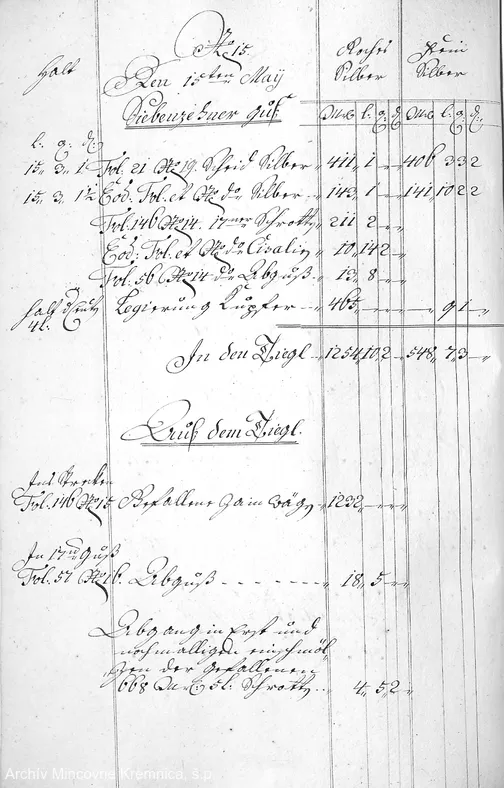 No 15.
Den 15ten Maÿ
Siebenzehner Guß
Halt
Roches Silber
Fein Silber
M: l: q: d M: l: q: d
l: q: d:
15, 3, 1 Fol. 21 No 19. Scheid Silber 411, 1 406, 3 3 2
15, 3, 1½ Eod: Fol. et No do Silber 143, 1 141, 10 2 2
Fol. 146 No 14. 17ner Schrott 211 2
Eod: Fol. et No do Cisalie 10, 14 2
Fol. 56 No 14 do Abguß 13, 8
4l. Legierung Kupfer 465 9 1
In den Tiegl 1254, 10, 2 548, 7, 3
Auß dem Tiegl.
Ins Strecken
Fol. 146 No 15 Gefallene Zain wäg 1232
In 17ner Guß
Fol. 57 No 16. Abguß 18, 5
Abgang in Erst und
nochmalligen einschmöl-
zen der Gefallenen
668 M: 5l: Schrott 4, 5, 2
Archív Mincovne Kremnica, š.p.